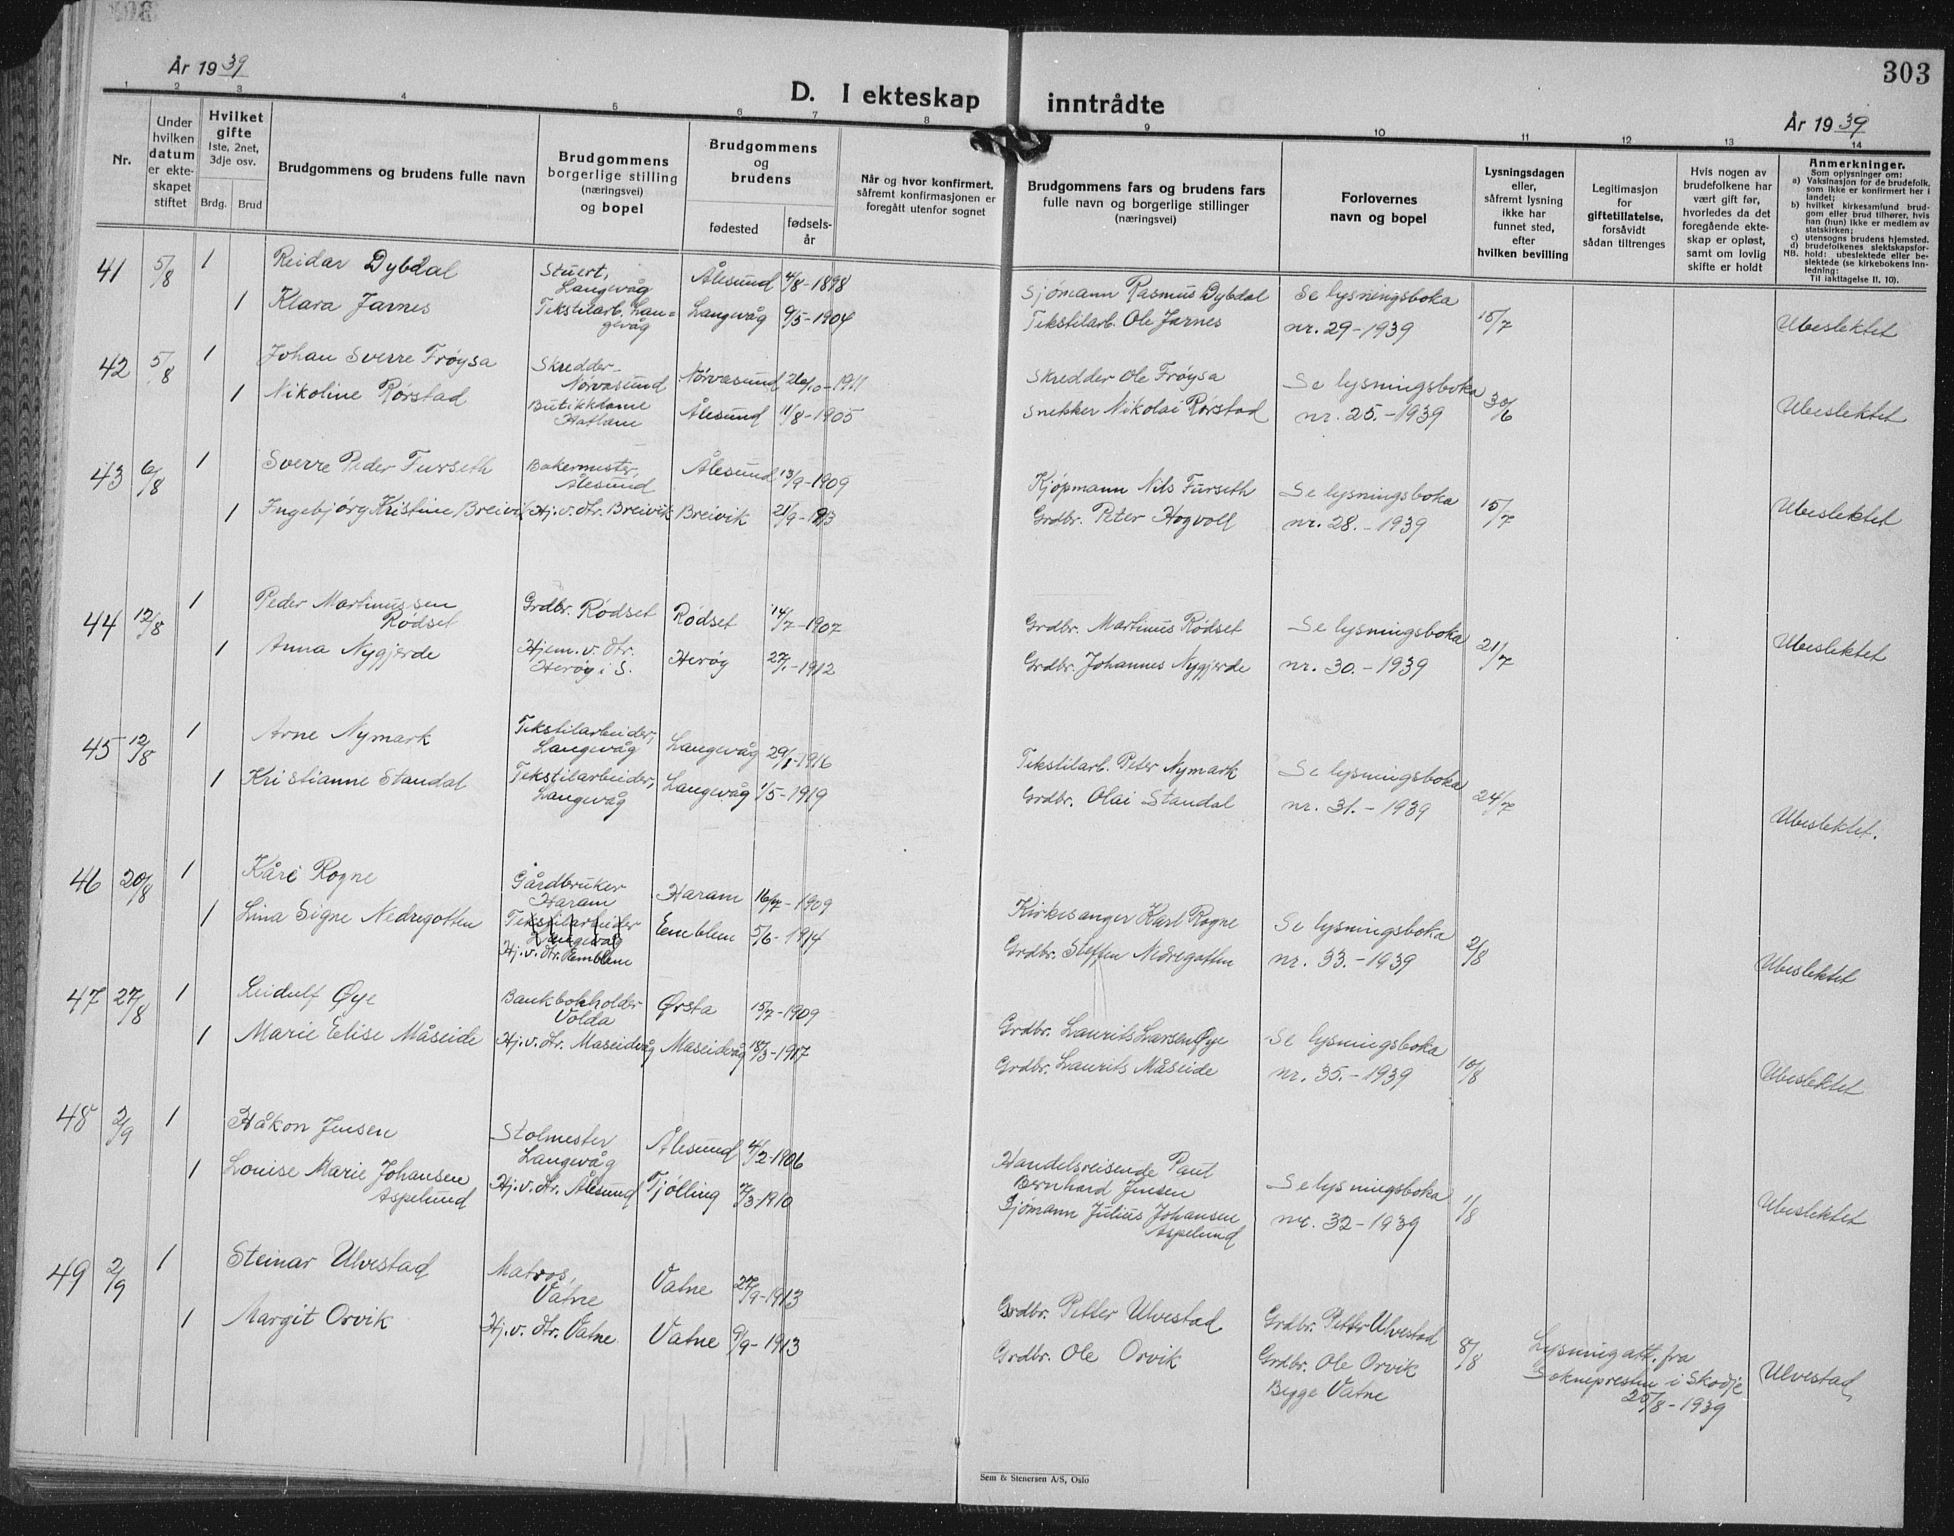 År 1939
D. I ekteskap inntrådte
303
År 1939
1 2 3 4 5 6 7 8 9 10 11 12 13 14
Nr.
Under hvilken datum er ekteskapet stiftet
Hvilket gifte
1ste, 2net, 3dje osv.
Brdg. Brud
Brudgommens og brudens fulle navn
Brudgommens borgerlige stilling (næringsvei) og bopel
Brudgommens og brudens
fødested
fødselsår
Når og hvor konfirmert, såfremt konfirmasjonen er foregått utenfor sognet
Brudgommens fars og brudens fars fulle navn og borgerlige stillinger (næringsvei)
Forlovernes navn og bopel
Lysningsdagen eller, såfremt lysning ikke har funnet sted, efter hvilken bevilling
Legitimasjon for giftetillatelse, forsåvidt sådan tiltrenges
Hvis nogen av brudefolkene har vært gift før, hvorledes da det foregående ekteskap er opløst, samt om lovlig skifte er holdt
Anmerkninger.
Som oplysninger om:
a) Vaksinasjon for de brudefolk, som ikke er konfirmert her i landet;
b) hvilket kirkesamfund brudgom eller brud tilhører, hvis han (hun) ikke er medlem av statskirken;
c) utensogns brudens hjemsted.
d) brudefolkenes slektskapsforhold: ubeslektede eller beslektede (se kirkebokens Innledning:
NB. Til iakttagelse II, 10).
41 5/8 1 Reidar Dybdal Stuert, Langevåg Ålesund 4/8-1898 Sjømann Rasmus Dybdal Se lysningsboka
1 Klara Jarnes Tekstilarb. Langevåg Langevåg 9/5-1904 Tekstilarb. Ole Jarnes nr. 29-1939 15/7 Ubeslektet
42 5/8 1 Johan Sverre Frøysa Skredder- Nørvasund Nørvasund 26/10-1911 Skredder Ole Frøysa Se lysningsboka
1 Nikoline Rørstad Butikkdame Hatlane Ålesund 11/8-1905 Snekker Nikolai Rørstad nr. 25.-1939 30/6 Ubeslektet
43 6/8 1 Sverre Peder Furseth Bakermester, Ålesund Ålesund 13/9-1909 Kjøpmann Nils Furseth Se lysningsboka
1 Ingebjørg Kristine Breivik Hj.v. Str. Breivik Breivik 21/9-1913 Grdbr. Peter Hogvoll nr. 28.-1939 15/7 Ubeslektet
44 12/8 1 Peder Martinussen Rødset Grdbr. Rødset Rødset 14/7-1907 Grdbr. Martinus Rødset Se lysningsboka
1 Anna Nygjerde Hjem.v. Str. Herøy i S. Herøy 27/1-1912 Grdbr. Johannes Nygjerde nr. 30.-1939 21/7 Ubeslektet
45 12/8 1 Arne Nymark Tekstilarbeider, Langevåg Langevåg 29/1-1916 Tekstilarb. Peter Nymark Se lysningsboka
1 Kristianne Standal Tekstilarbeider, Langevåg Langevåg 1/5-1919 Grdbr. Olai Standal nr. 31.-1939 24/7 Ubeslektet.
46 20/8 1 Kåre Rogne Gårdbruker Haram Haram 16/7-1909 Kirkesanger Karl Rogne Se lysningsboka
1 Lina Signe Nedregotten Tekstilarbeider Langevåg Hj.v. Str. Emblem Emblem 5/6-1914 Grdbr. Steffen Nedregotten nr. 33.-1939 2/8 Ubeslektet
47 27/8 1 Leidulf Øye Bankbokholder Volda Ørsta 15/7-1909 Grdbr. Laurits Larsen Øye Se lysningsboka
1 Marie Elise Måseide Hj.v. Str. Maseidvåg Maseidvåg 18/3-1917 Grdbr. Laurits Måseide nr. 35.-1939 10/8 Ubeslektet
48 2/9 1 Håkon Jensen Stolmester Langevåg Ålesund 4/2-1906 Handelsreisende Paul Bernhard Jensen Se lysningsboka
1 Louise Marie Johansen Aspelund Hj.v. Str. Ålesund Tjølling 7/3-1910 Sjømann Julius Johansen Aspelund nr. 32-1939 1/8 Ubeslektet
49 2/9 1 Steinar Ulvestad Matros, Vatne Vatne 27/9-1913 Grdbr. Petter Ulvestad Grdbr. Petter Ulvestad
1 Margit Orvik Hj.v. Str. Vatne Vatne 9/9-1913 Grdbr. Ole Orvik Grdbr. Ole Orvik Begge Vatne 8/8 Lysningatt. fra Soknepresten i Skodje 25/8-1939 Ulvestad
Sem & Stenersen A/S, Oslo